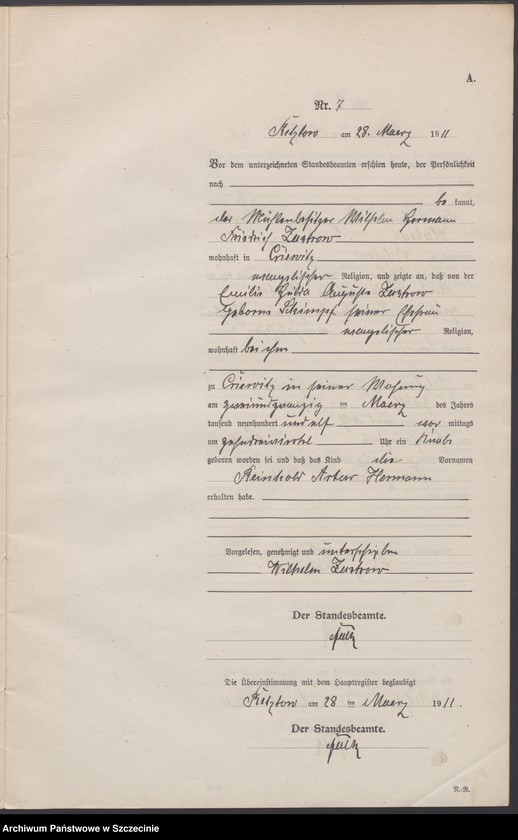 A.
Nr. 7
am 28. Maerz 1911
Vor dem unterzeichneten Standesbeamten erschien heute, der Persönlichkeit
nach
be kannt,
der Mühlenbesitzer Wilhelm Hermann
Friedrich Zastrow
wohnhaft in Criewitz
evangelischer Religion, und zeigte an, daß von der
Emilie Auguste Zastrow
geborene Schimpf seiner Ehefrau
evangelischer Religion,
wohnhaft bei ihm
zu Criewitz in seiner Wohnung
am zweiundzwanzig ten Maerz des Jahres
tausend neunhundert und elf vor mittags
um zehndreiviertel Uhr ein Knabe
geboren worden sei und daß das Kind die Vornamen
Reinhold Artur Hermann
erhalten habe.
Vorgelesen, genehmigt und unterschrieben
Wilhelm Zastrow
Der Standesbeamte.
Die Übereinstimmung mit dem Hauptregister beglaubigt
am 28 ten Maerz 1911.
Der Standesbeamte.
N.-R.
Archiwum Państwowe w Szczecinie